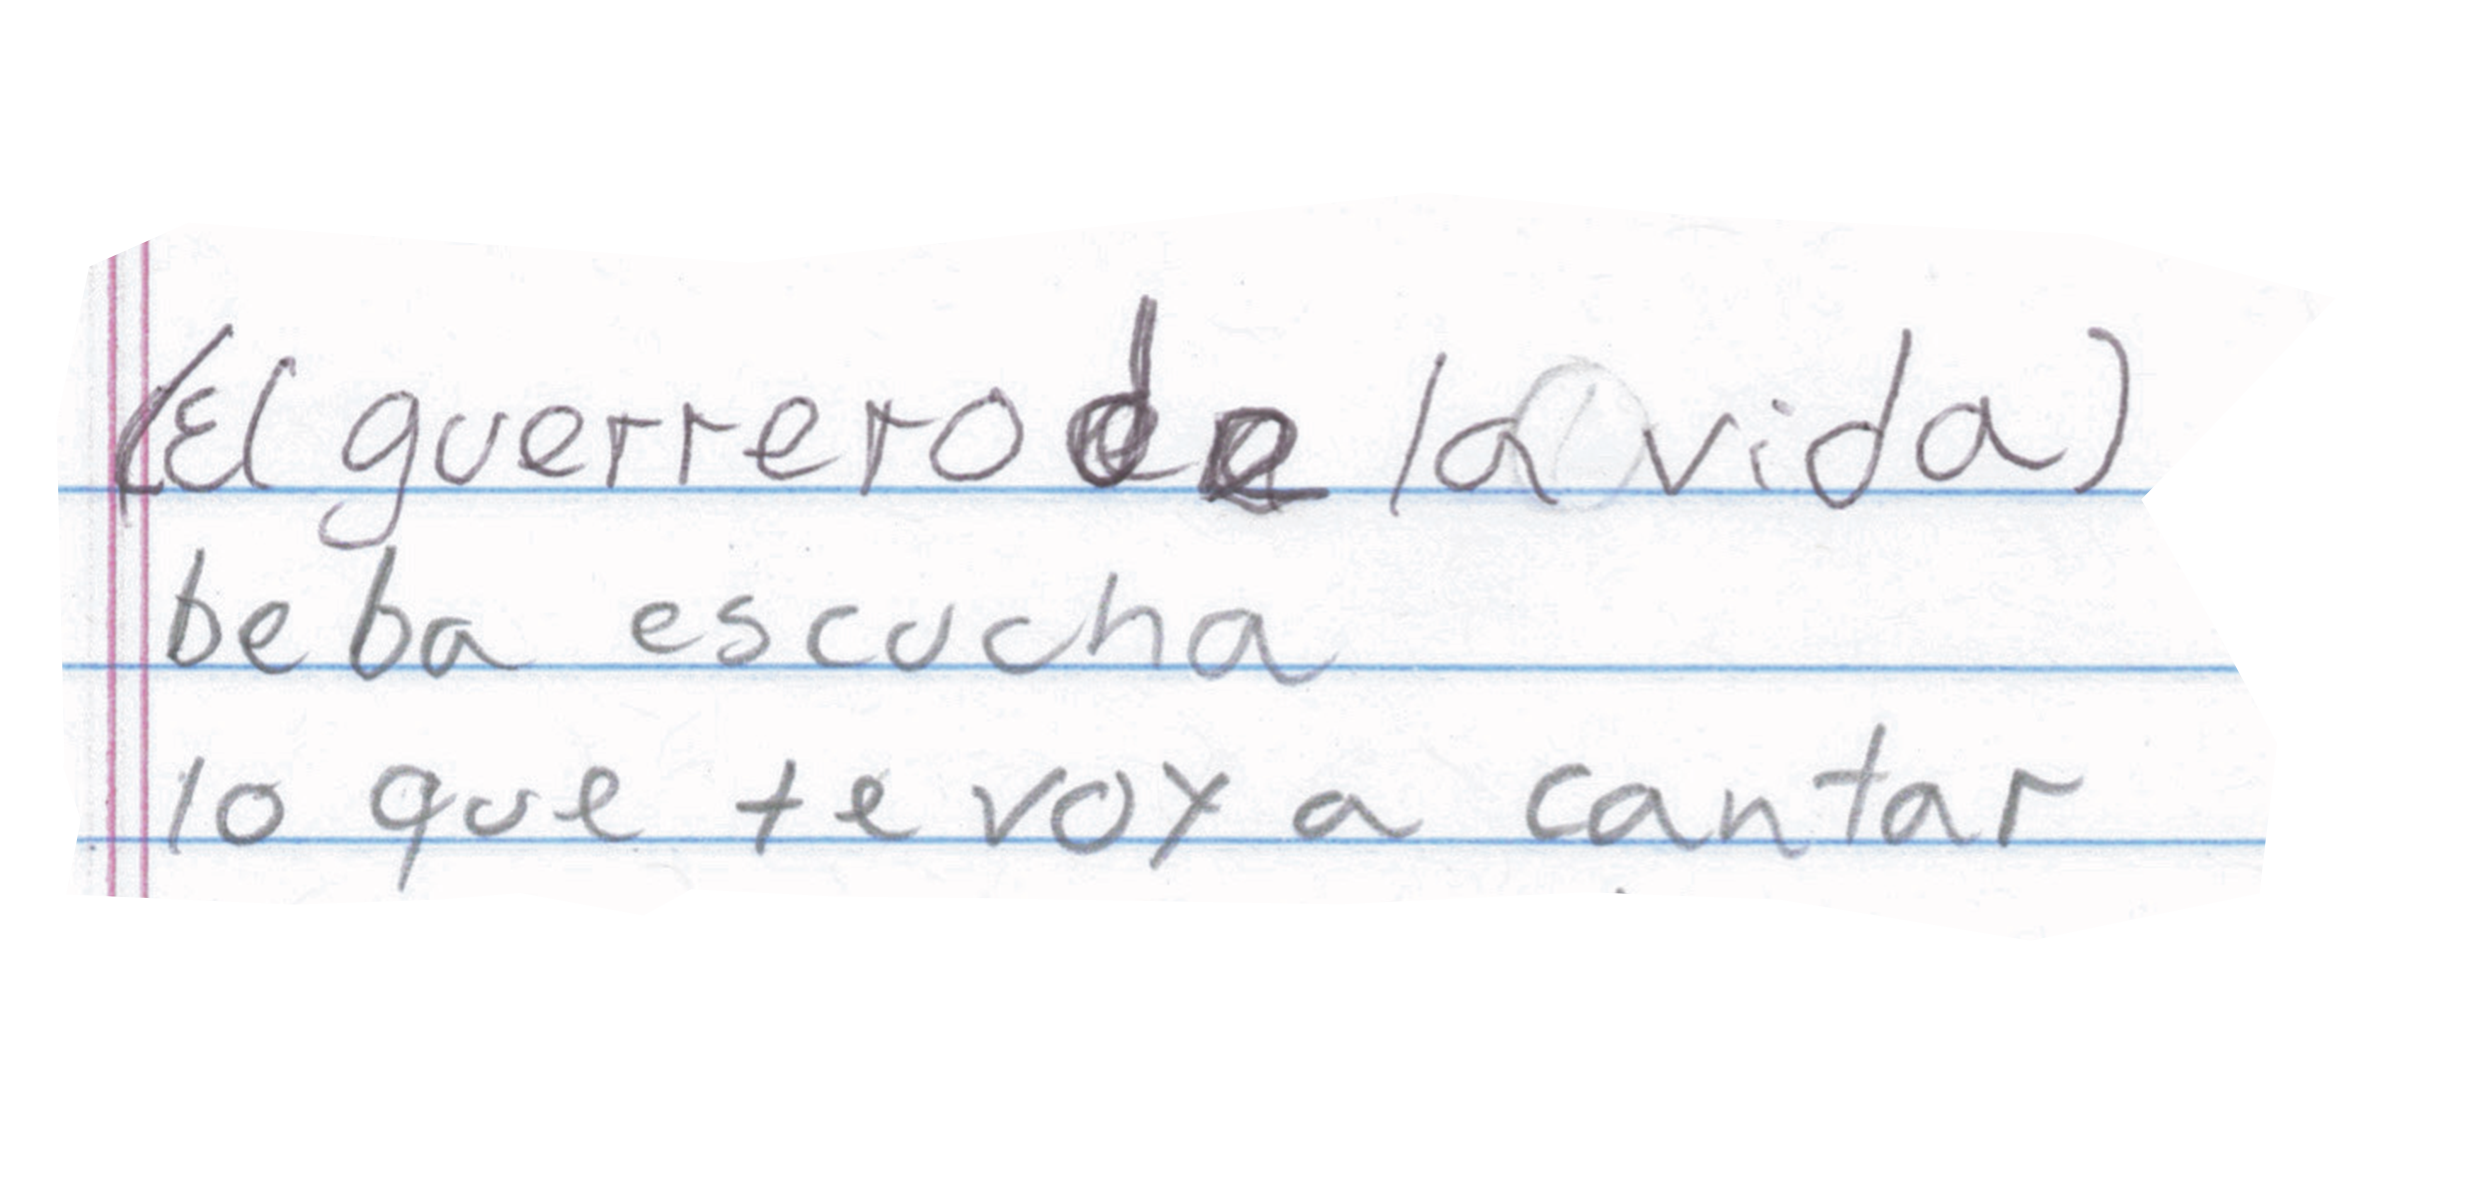 (El guerrero de la vida)
beba escucha
lo que te voy a cantar